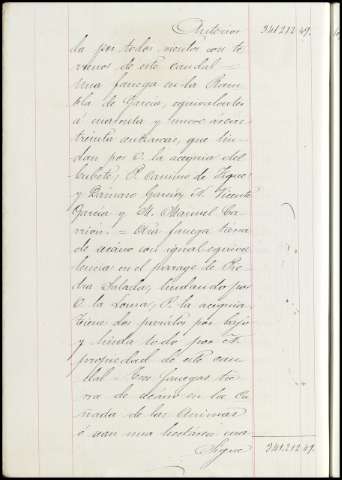 Anterior 341.212.49.
da por todos vientos con te-
rrenos de este caudal =
Una fanega en la Ram-
bla de Garcia, equivalentes
á cuarenta y nueve áreas
treinta centiareas, que lin-
dan por O. la acequia del
Cubete, P. Camino de
y Damaso Garcia, N. Vicente
Garcia y M. Manuel Ca-
rrion. = Otra fanega tierra
de secano con igual equiva-
lencia en el parage de Pie-
dra Salada, lindando por
O. la Loma, P. la acequia
tiene dos por bajo
y linda todo por N.
propiedad de este cau-
dal = Tres fanegas tie-
rra de secano en la Ca-
ñada de las Animas
ó sean una hectárea cua-
Sigue 341.212.49.